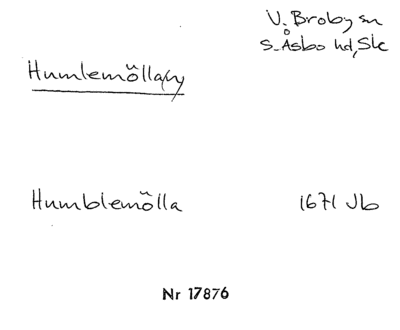 V. Broby sn
S. Åsbo hd, Sk
Humlemöllan
Humblemölla 1671 Jb
Nr 17876